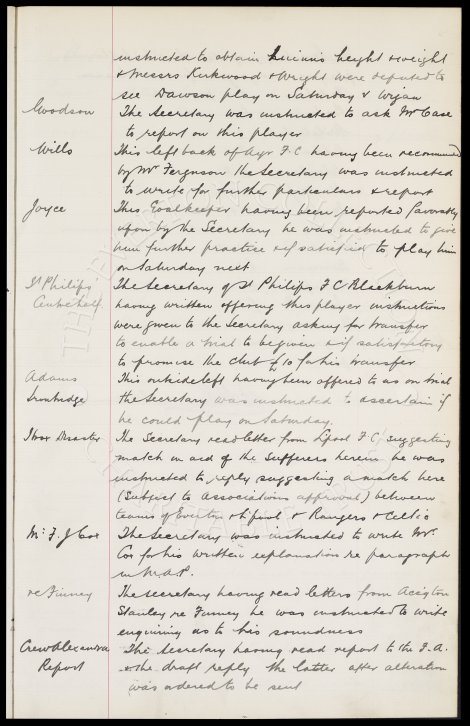 instructed to obtain Lucius height & weight
& Messrs Kirkwood & Wright were deputed to
see Dawson play on Saturday v Wigan
Goodson The Secretary was instructed to ask Mr Case
to report on this player
Wills This left back of Ayr F.C having been recommend
by Mr Ferguson the Secretary was instructed
to write for further particulars & report
Joyce This Goalkeeper having been reported favorably
upon by the Secretary he was instructed to give
him further practice & if satisfied to play him
on Saturday next
St Philips The Secretary of St Philips F C Blackburn
Centrehalf having written offering this player instructions
were given to the Secretary asking for transfer
to enable a trial to be given & if satisfactory
to promise the club £10 for his transfer
Adams This outside left having been offered to us on trial
Ironbridge the Secretary was instructed to ascertain if
he could play on Saturday.
Ibrox Disaster The Secretary read letter from Lpool F C, suggesting
match in aid of the sufferers herein he was
instructed to reply suggesting a match here
(Subject to Associations approval) between
teams of Everton & Lpool & Rangers & Celtic
Mr F. J Cox The Secretary was instructed to write Mr
Cox for his written explanation re paragraph
in M.A.P.
re Finney The Secretary having read letters from Accrington
Stanley re Finney he was instructed to write
enquiring as to his soundness
Crewe Alexandra The Secretary having read report to the F.A.
Report & the draft reply the latter after alteration
was ordered to be sent